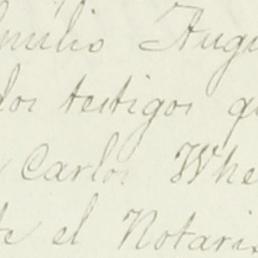 Emilio Augu
dos testigos q
Carlos Whe
te el Notari